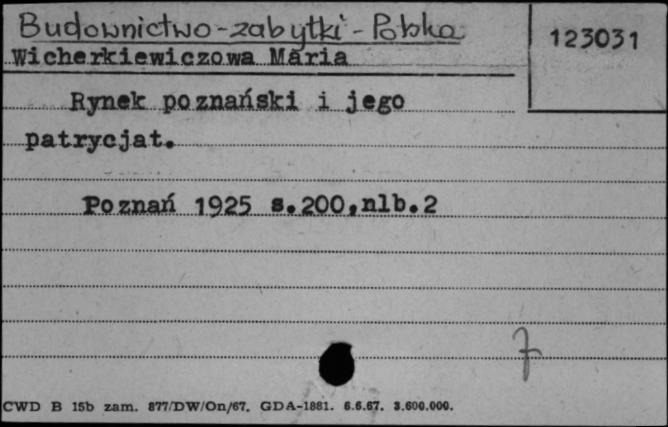 Budownictwo-zabytki-Polska
123031
Wicherkiewiczowa Maria
Rynek poznański i jego
patrycjat.
Poznań 1925 s.200,nlb.2
7
CWD B 15b zam. 877/DW/On/67. GDA-1881. 6.6.67. 3.600.000.